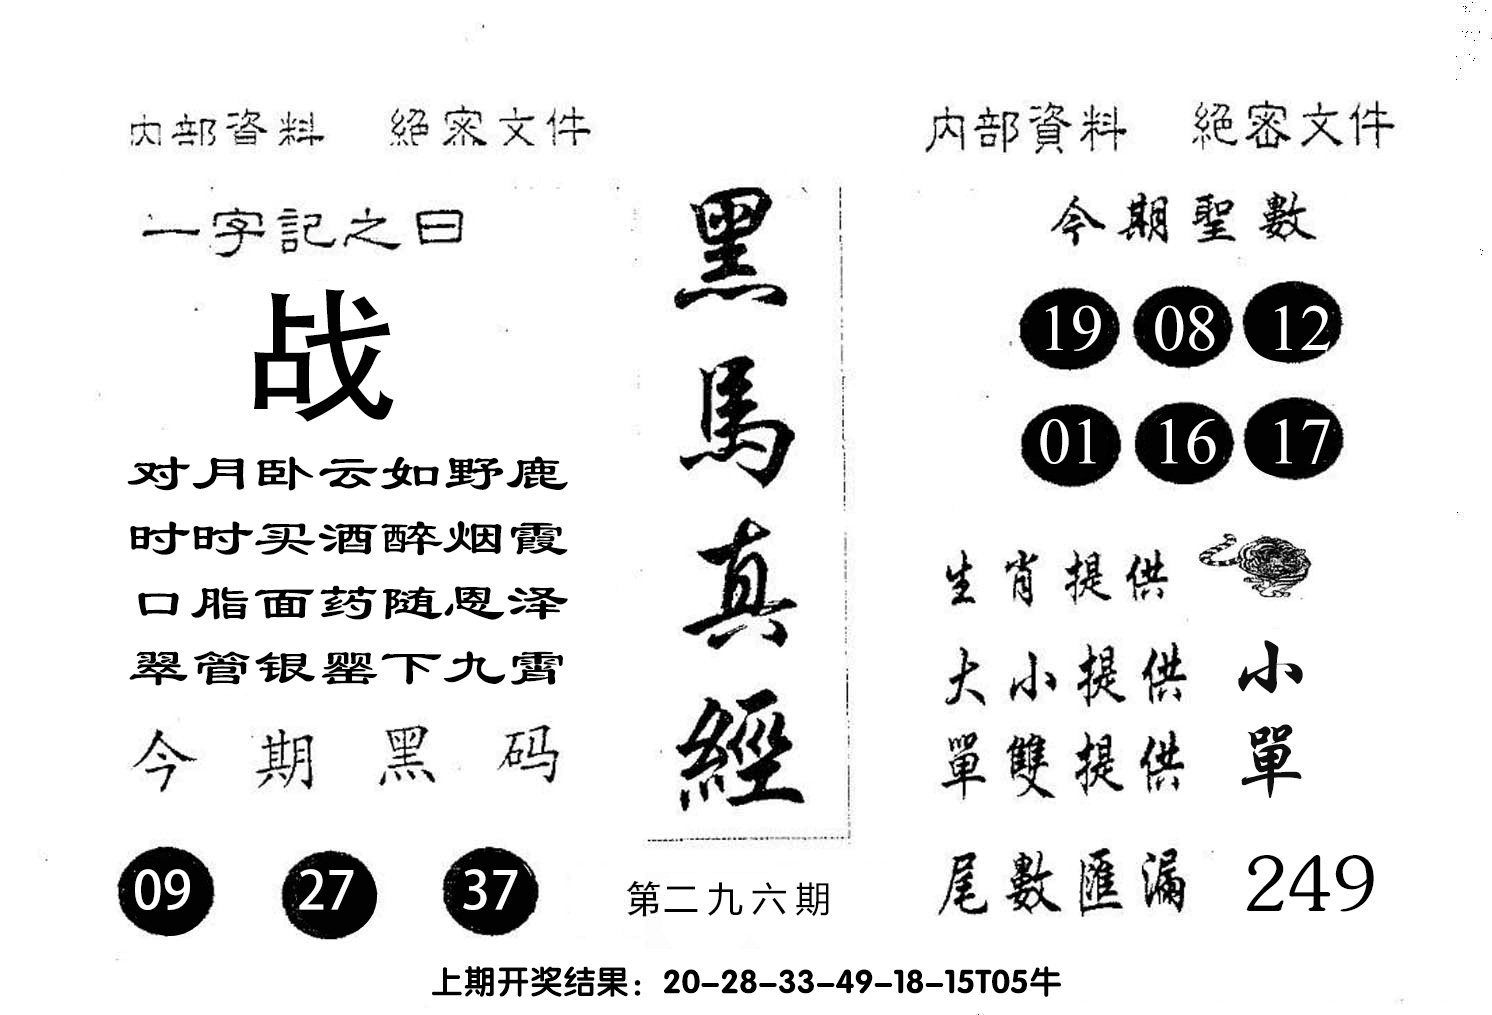 内部資料 絕密文件
一字記之曰
战
对月卧云如野鹿
时时买酒醉烟霞
口脂面药随恩泽
翠管银罂下九霄
今期黑码
09 27 37
黑馬真經
第二九六期
内部資料 絕密文件
今期聖數
19 08 12
01 16 17
生肖提供
大小提供 小
單雙提供 單
尾數匯漏 249
上期开奖结果：20-28-33-49-18-15T05牛